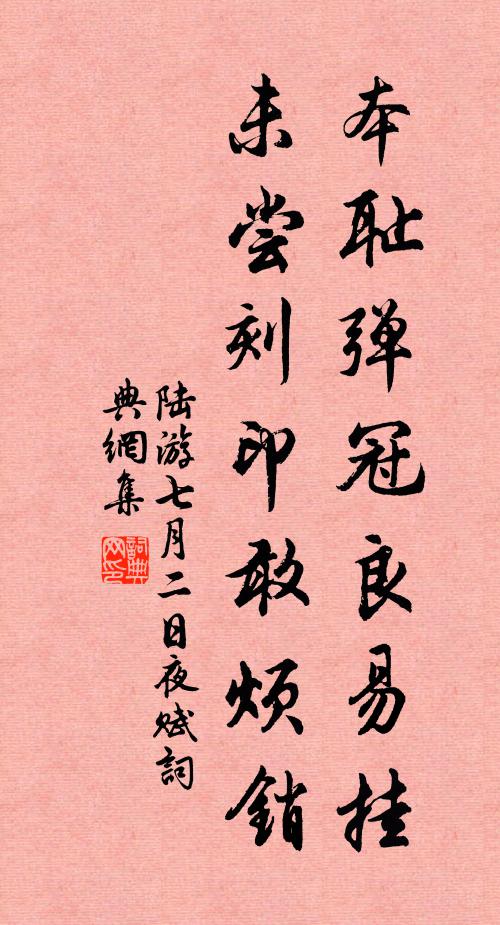 本耻弹冠良易挂
未尝刻印敢烦销
陆游七月二日夜赋詞
典網集
詞典网印